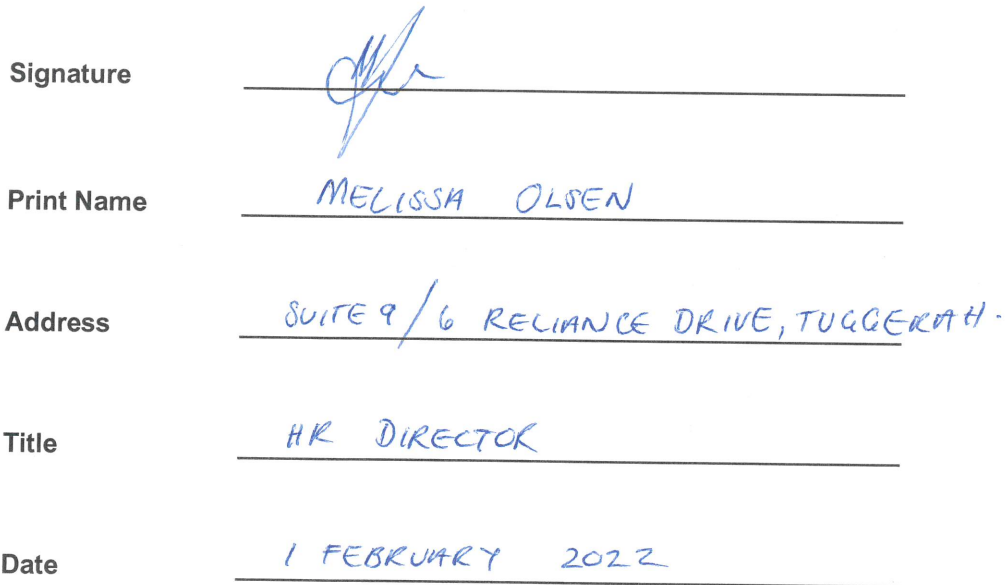 Signature
Print Name MELISSA OLSEN
Address SUITE 9/6 RELIANCE DRIVE, TUGGERAH.
Title HR DIRECTOR
Date 1 FEBRUARY 2022